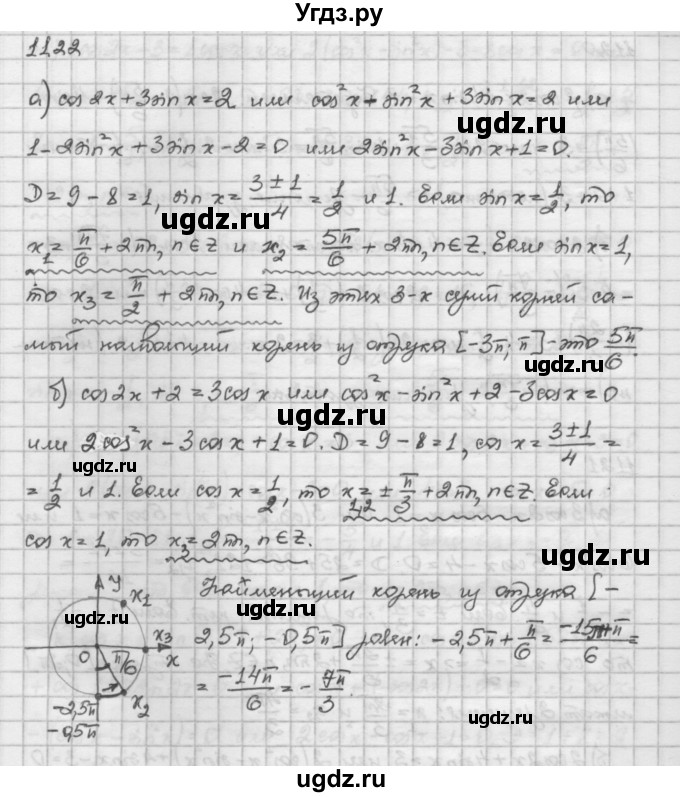 Угдз.ру
1122
а) cos 2x + 3 sin x = 2 или cos²x - sin²x + 3 sin x = 2 или
ugdz.ru
1 - 2 sin²x + 3 sin x - 2 = 0 или 2 sin²x - 3 sin x + 1 = 0.
D = 9 - 8 = 1, sin x = (3 ± 1)/4 = 1/2 и 1. Если sin x = 1/2, то
ugdz.ru
x₁ = π/6 + 2πn, n∈Z и x₂ = 5π/6 + 2πn, n∈Z. Если sin x = 1,
то x₃ = π/2 + 2πn, n∈Z. Из этих 3-х серий корней са-
мый наибольший корень из отрезка [-3π; π] - это 5π/6
ugdz.ru
б) cos 2x + 2 = 3 cos x или cos²x - sin²x + 2 - 3 cos x = 0
ugdz.ru
или 2 cos²x - 3 cos x + 1 = 0. D = 9 - 8 = 1, cos x = (3 ± 1)/4 =
ugdz.ru
= 1/2 и 1. Если cos x = 1/2, то x₁,₂ = ± π/3 + 2πn, n∈Z. Если
cos x = 1, то x₃ = 2πn, n∈Z.
ugdz.ru
y x₁
Найменьший корень из отрезка [-
ugdz.ru
x₃
0 π/6 x
2,5π; -0,5π] равен: -2,5π + π/6 = -15π+π/6 =
x₂
-2,5π
-0,5π
= -14π/6 = - 7π/3.
ugdz.ru
ugdz.ru